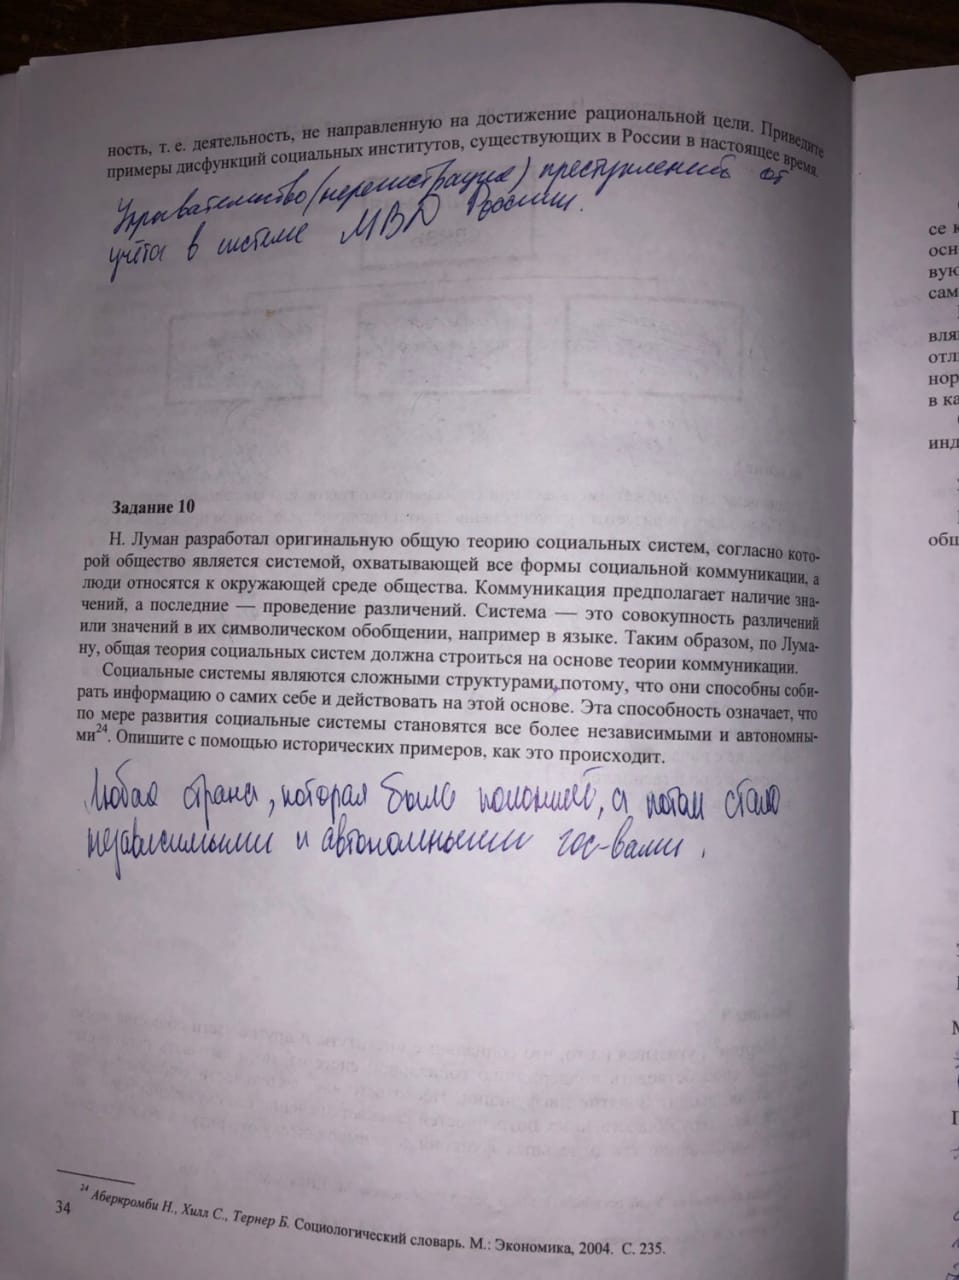 ность, т. е. деятельность, не направленную на достижение рациональной цели. Приведите
примеры дисфункций социальных институтов, существующих в России в настоящее время.
Укрывательство (нерегистрация) преступлений от
учёта в системе МВД России.
Задание 10
Н. Луман разработал оригинальную общую теорию социальных систем, согласно кото-
рой общество является системой, охватывающей все формы социальной коммуникации, а
люди относятся к окружающей среде общества. Коммуникация предполагает наличие зна-
чений, а последние — проведение различений. Система — это совокупность различений
или значений в их символическом обобщении, например в языке. Таким образом, по Лума-
ну, общая теория социальных систем должна строиться на основе теории коммуникации.
Социальные системы являются сложными структурами, потому, что они способны соби-
рать информацию о самих себе и действовать на этой основе. Эта способность означает, что
по мере развития социальные системы становятся все более независимыми и автономны-
ми24. Опишите с помощью исторических примеров, как это происходит.
Любая страна, которая была колонией, а потом стала
независимыми и автономными гос-вами.
24 Аберкромби Н., Хилл С., Тернер Б. Социологический словарь. М.: Экономика, 2004. С. 235.
34
се к
осн
вую
сам
вля
отл
нор
в ка
инд
общ